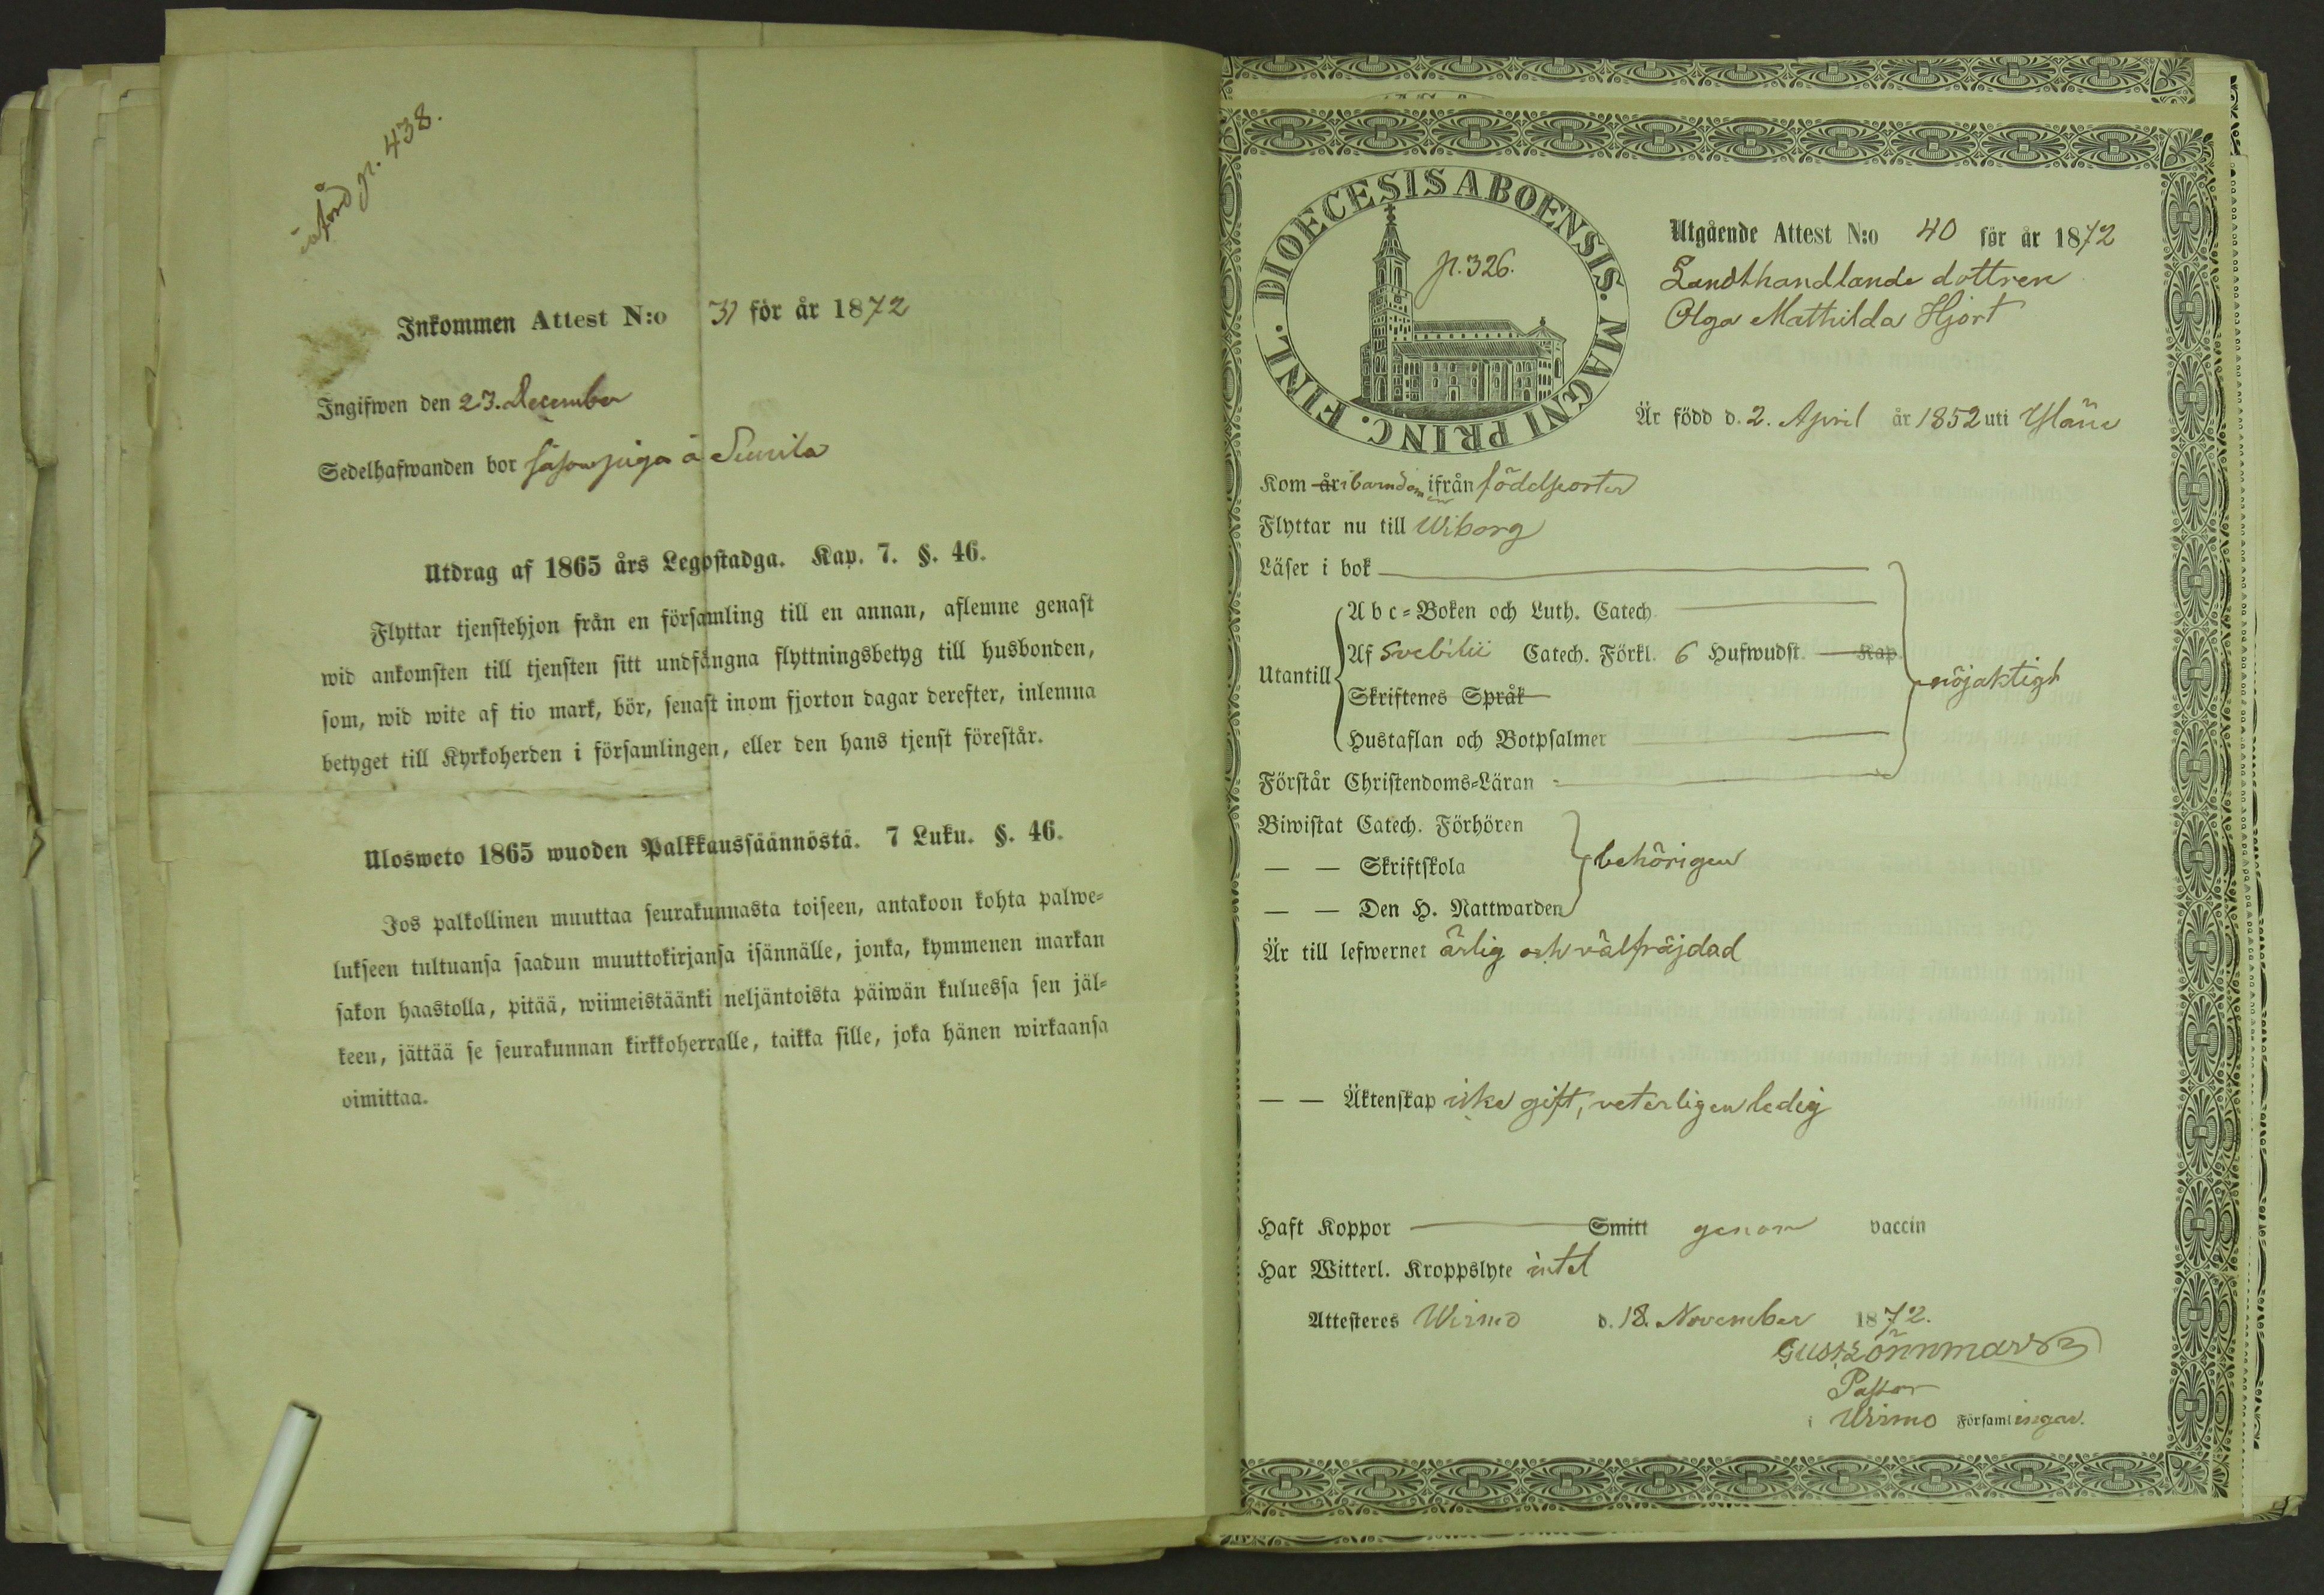 införd p. 438.
Inkommen Attest N:o 31 för år 1872
Ingifwen den 23. December
Sedelhafwanden bor såsom piga å
Utdrag af 1865 års Legostadga. Kap. 7. §. 46.
Flyttar tjenstehjon från en församling till en annan, aflemne genast
wid ankomsten till tjensten sitt undfångna flyttningsbetyg till husbonden,
som, wid wite af tio mark, bör, senast inom fjorton dagar derefter, inlemna
betyget till Kyrkoherden i församlingen, eller den hans tjenst förestår.
Ulosweto 1865 wuoden Palkkaussäännöstä. 7 Luku. §. 46.
Jos palkollinen muuttaa seurakunnasta toiseen, antakoon kohta palwe=
lukseen tultuansa saadun muuttokirjansa isännälle, jonka, kymmenen markan
sakon haastolla, pitää, wiimeistäänki neljäntoista päiwän kuluessa sen jäl=
keen, jättää se seurakunnan kirkkoherralle, taikka sille, joka hänen wirkaansa
oimittaa.
DIOECESIS ABOENSIS. MAGNI PRINC. FINL.
p. 326.
Utgående Attest N:o 40 för år 1872
Landthandlande dottren
Olga Mathilda Hjort
Är född d. 2. April år 1852 uti Yläne
Kom år i barndomen ifrån födelseorten
Flyttar nu till Wiborg
Läser i bok
Utantill
Abc=Boken och Luth. Catech.
Af Svebilii Catech. Förkl. 6 Hufwudst. Kap.
Skriftenes Språk
Hustaflan och Botpsalmer
nöjaktigt
Förstår Christendoms=Läran
Biwistat Catech. Förhören
— — Skriftskola
— — Den H. Nattwarden
behörigen
Är till lefwernet ärlig och välfräjdad
— — Äktenskap icke gift, veterligen ledig
Haft Koppor Smitt genom vaccin
Har Witterl. Kroppslyte intet
Attesteres Wirmo d. 18. November 1872.
Gust Lönnmark
Pastor
i Wirmo Församlingar.